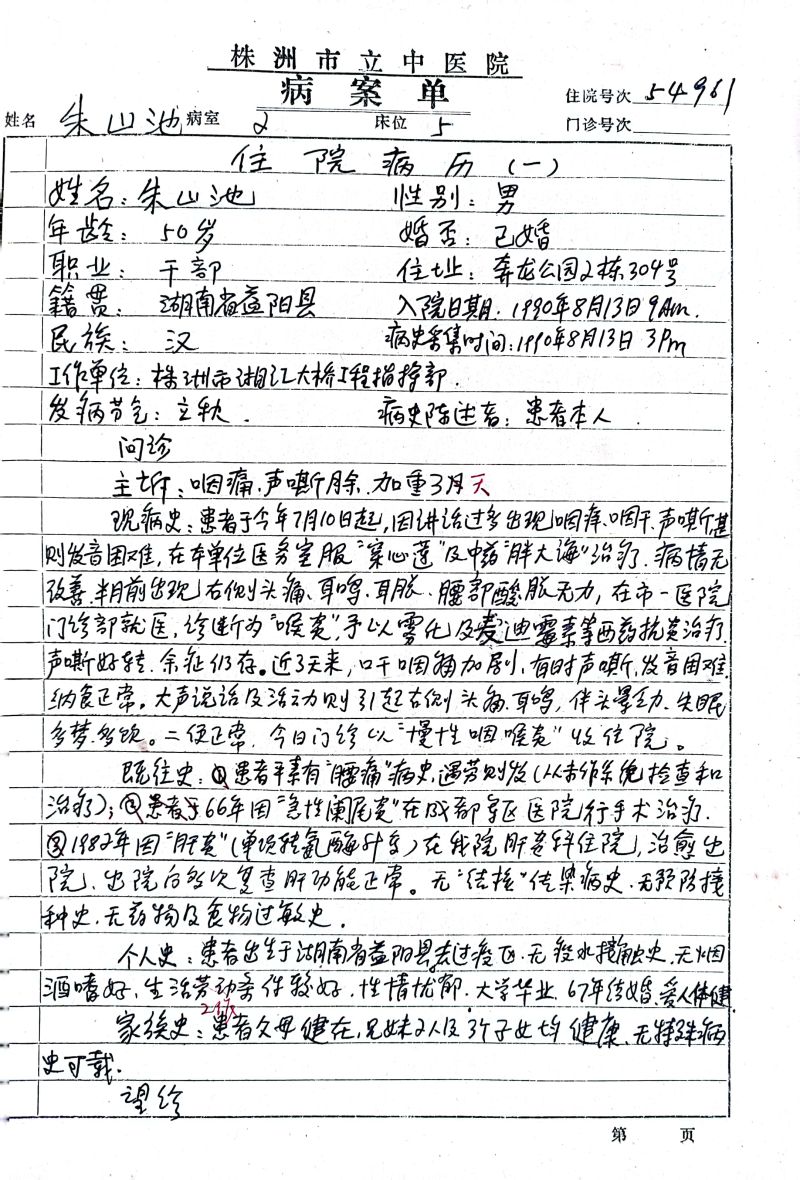 株洲市立中医院
病案单
住院号次 54961
姓名 朱山池 病室 2 床位 5 门诊号次
住院病历(一)
姓名:朱山池 性别:男
年龄:50岁 婚否:已婚
职业:干部 住址:奔龙公园2栋304号
籍贯:湖南省益阳县 入院日期:1990年8月13日9Am.
民族:汉 病史采集时间:1990年8月13日3Pm
工作单位:株洲市湘江大桥工程指挥部.
发病节气:立秋. 病史陈述者:患者本人.
问诊
主诉:咽痛.声嘶月余.加重3天
现病史:患者于今年7月10日起,因讲话过多出现咽痒.咽干.声嘶甚
则发音困难,在本单位医务室服"穿心莲"及中药"胖大海"治疗.病情无
改善.半月前出现右侧头痛、耳鸣.耳胀.腰部酸胀无力,在市一医院
门诊部就医,诊断为"喉炎",予以雾化及麦迪霉素等西药抗炎治疗.
声嘶好转.余症仍存。近3天来,口干咽痛加剧,有时声嘶,发音困难.
纳食正常。大声说话及活动则引起右侧头痛.耳鸣,伴头晕乏力.失眠
多梦.多饮。二便正常,今日门诊以"慢性咽喉炎"收住院。
既往史:①患者平素有"腰痛"病史,遇劳则发(从未作系统检查和
治疗);②患者于66年因"急性阑尾炎"在成都军区医院行手术治疗.
③1982年因"肝炎"(单项转氨酶升高)在我院肝炎科住院,治愈出
院、出院后多次复查肝功能正常。无"结核"传染病史.无预防接
种史.无药物及食物过敏史.
个人史:患者出生于湖南省益阳县,去过疫区.无疫水接触史.无烟
酒嗜好.生活劳动条件较好.性情忧郁.大学毕业.67年结婚.爱人体健.
家族史:患者父母健在,兄妹2人及3个子女均健康.无特殊病
史可载.
望诊
第 页